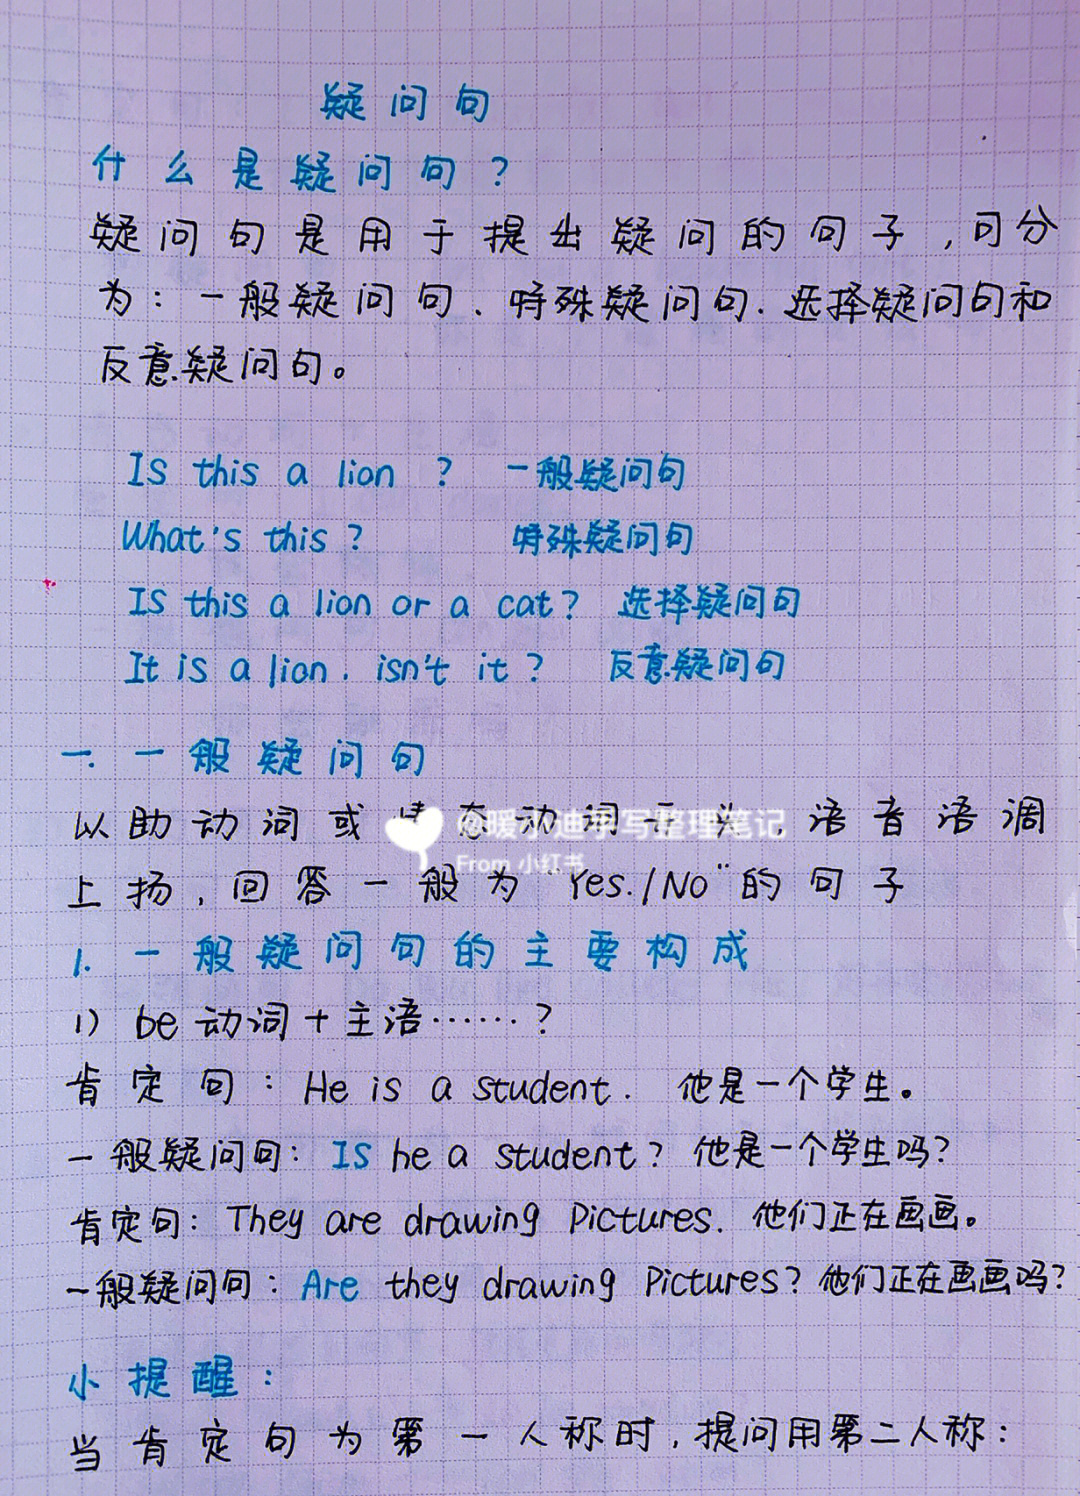 疑问句
什么是疑问句?
疑问句是用于提出疑问的句子,可分
为:一般疑问句.特殊疑问句.选择疑问句和
反意疑问句。
IS this a lion ? 一般疑问句
What's this? 特殊疑问句
IS this a lion or a cat? 选择疑问句
It is a lion. isn't it? 反意疑问句
一.一般疑问句
以助动词或情态动词开头,语音语调
@暖小迪手写整理笔记
From 小红书
上扬,回答一般为"Yes./No"的句子
1.一般疑问句的主要构成
1) be动词+主语……?
肯定句:He is a student. 他是一个学生。
一般疑问句:IS he a student? 他是一个学生吗?
肯定句:They are drawing Pictures. 他们正在画画。
一般疑问句:Are they drawing Pictures? 他们正在画画吗?
小提醒:
当肯定句为第一人称时,提问用第二人称: